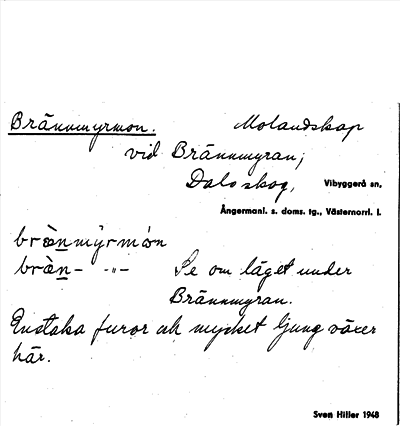 Brännmyrmon. Molandskap
vid Brännmyran;
Dals skog, Vibyggerå sn,
Ångermanl. s. doms. tg., Västernorrl. l.
brän̲mýrmòn
brän̲- -"- Se om läget under
Brännmyran.
Enstaka furor och mycket ljung växer
här.
Sven Hiller 1948